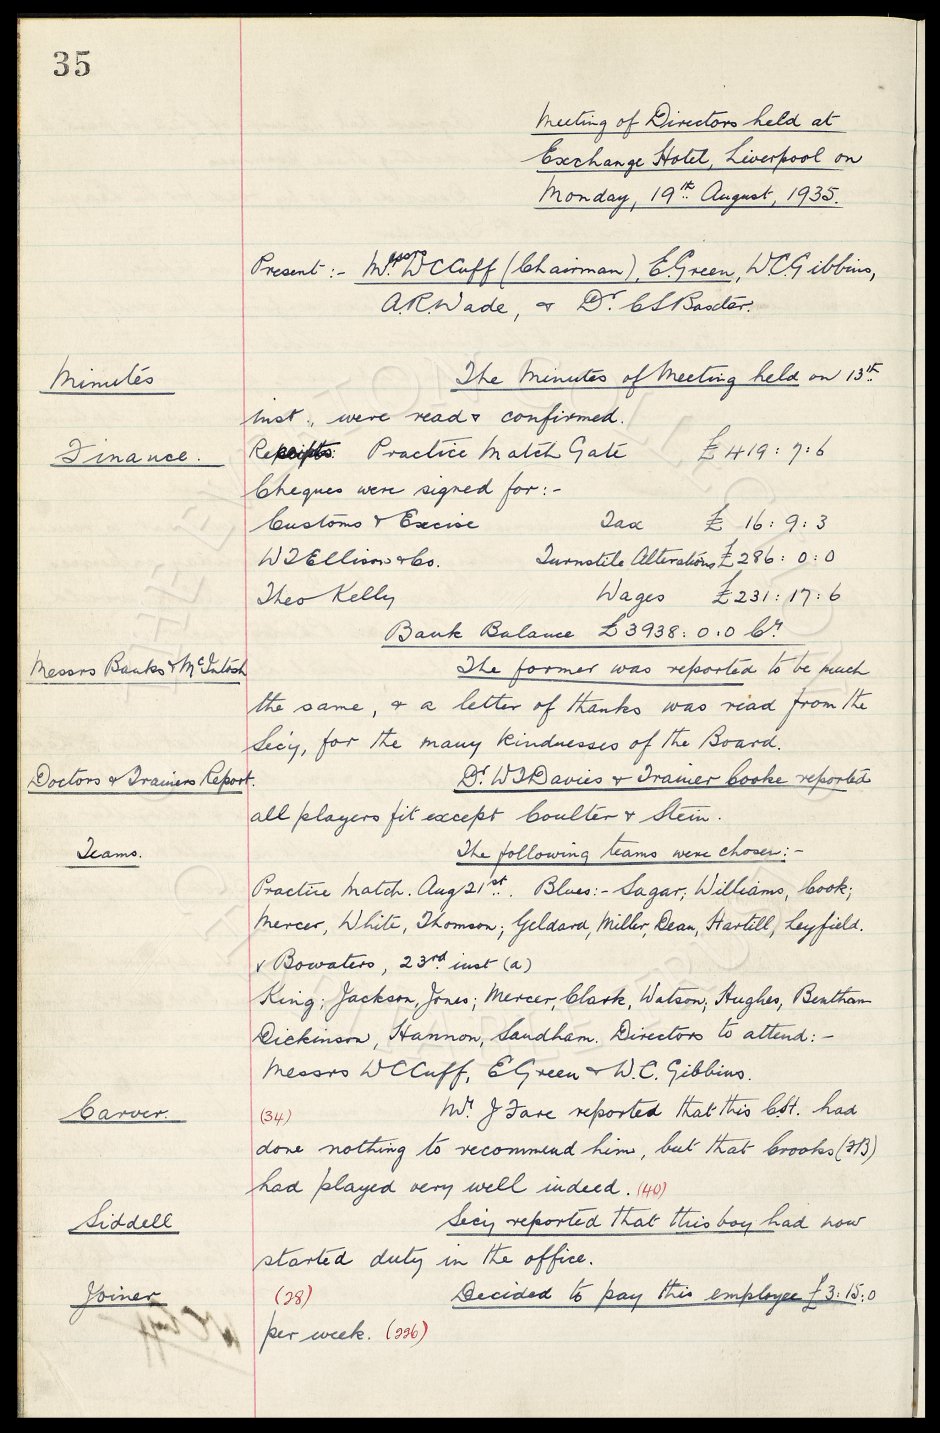 35
Meeting of Directors held at
Exchange Hotel, Liverpool on
Monday, 19th August, 1935.
Present :- Messrs W C Cuff (Chairman), E. Green, W.C. Gibbins,
A.R. Wade, & Dr. C S Baxter.
Minutes The Minutes of Meeting held on 13th
inst., were read & confirmed.
Finance. Receipts: Practice Match Gate £419 : 7 : 6
Cheques were signed for :-
Customs & Excise Tax £ 16 : 9 : 3
W J Ellison & Co. Turnstile Alterations £286 : 0 : 0
Theo Kelly Wages £231 : 17 : 6
Bank Balance £3938 : 0 : 0 Cr.
Messrs Banks & McIntosh The former was reported to be much
the same, & a letter of thanks was read from the
Sec'y, for the many kindnesses of the Board.
Doctors & Trainers Report. Dr. W J Davies & Trainer Cooke reported
all players fit except Coulter & Stein.
Teams. The following teams were chosen :-
Practice Match. Aug 21st. Blues :- Sagar; Williams, Cook;
Mercer, White, Thomson; Geldard, Miller, Dean, Hartill, Leyfield.
v Bowaters, 23rd. inst (a)
King; Jackson, Jones; Mercer, Clark, Watson; Hughes, Bentham
Dickinson, Hannon, Sandham. Directors to attend :-
Messrs W C Cuff, E Green & W.C. Gibbins.
Carver. (34) Mr. J Fare reported that this C.H. had
done nothing to recommend him, but that Crooks (FB)
had played very well indeed. (40)
Siddell Sec'y reported that this boy had now
started duty in the office.
Joiner (28) Decided to pay this employee £3 : 15 : 0
per week. (226)